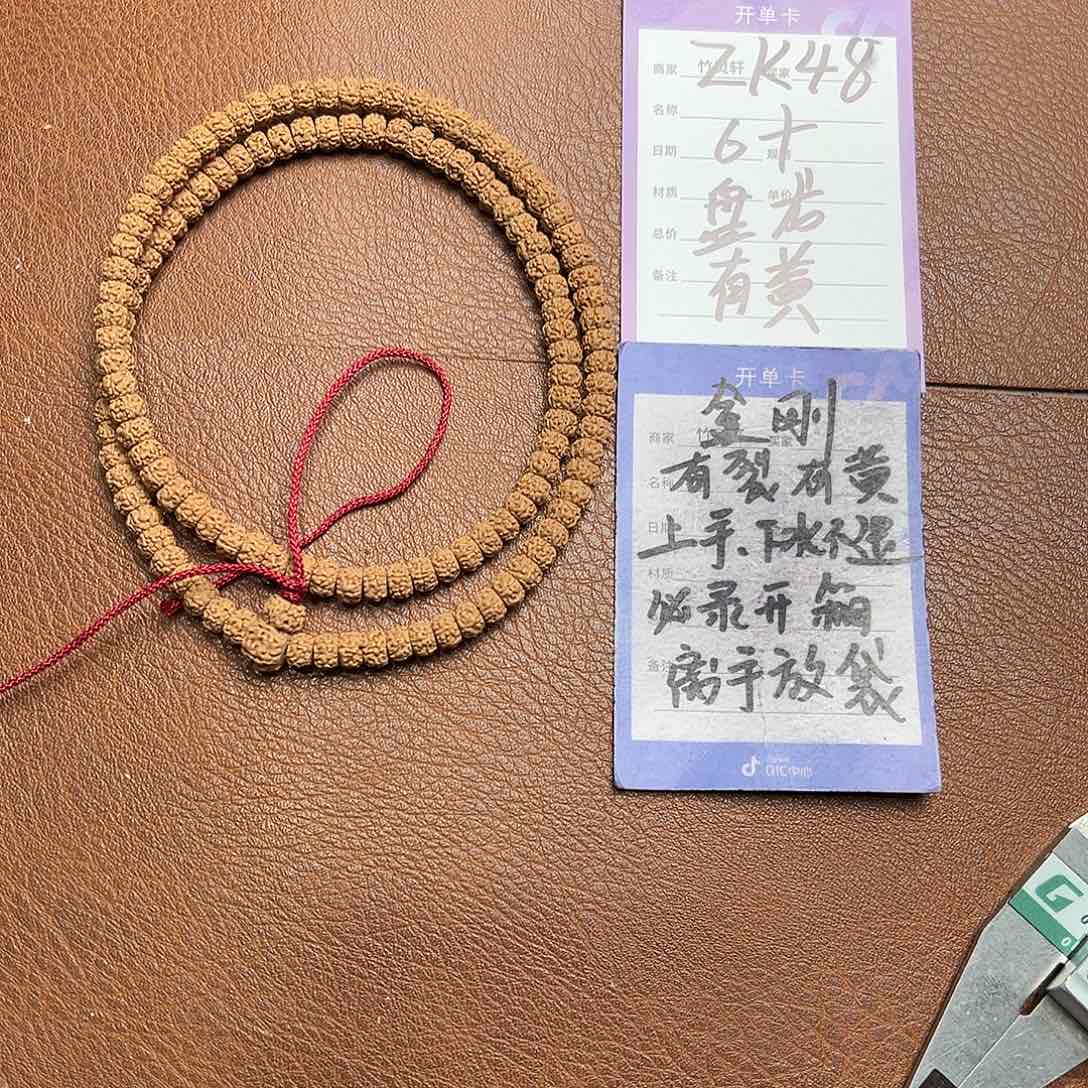 开单卡
商家 竹贝轩 买家
ZK48
名称
6十
日期
盘龙
材质 单价
总价
有黄
备注
开单卡
金刚
商家 竹
有裂 有黄
名称
上手、下水不退
日期
材质
必录开箱
备注
离手放袋
QIC中心
G
0